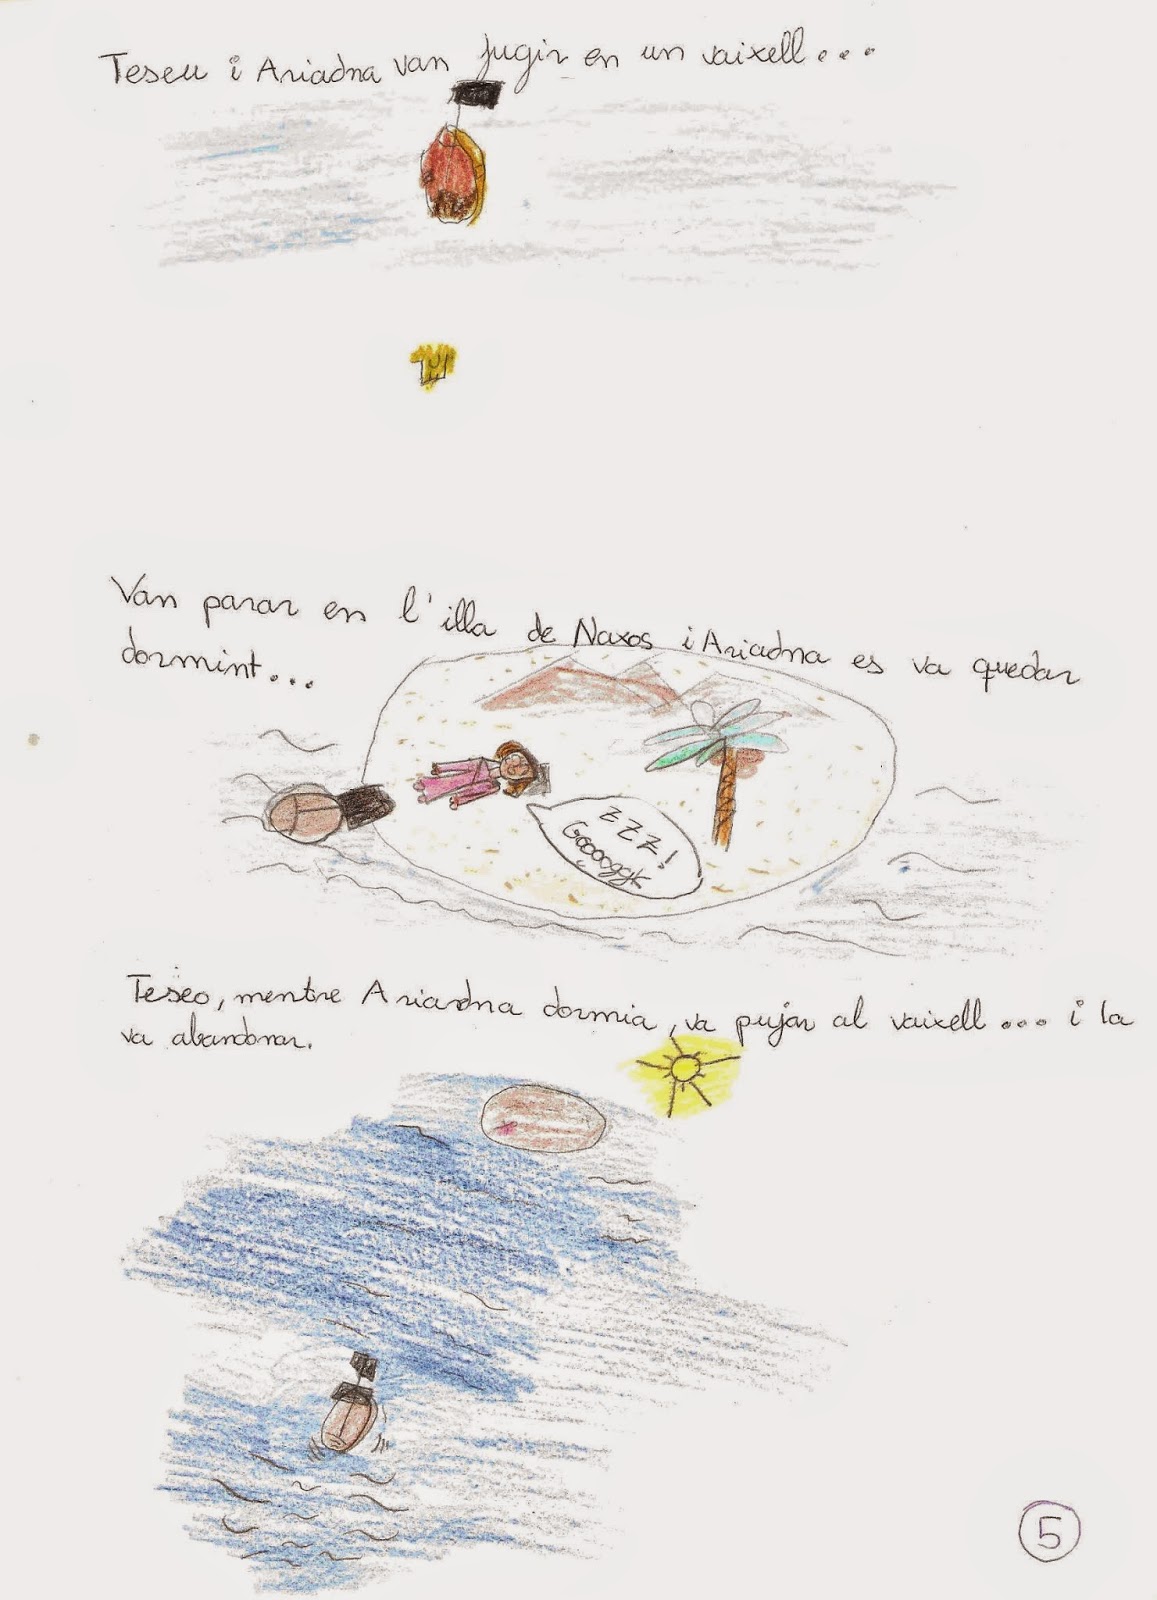 Teseu i Ariadna van fugir en un vaixell...
Van parar en l'illa de Naxos i Ariadna es va quedar
dormint...
ZZZ!
Teseo, mentre Ariadna dormia, va pujar al vaixell... i la
va abandonar.
5